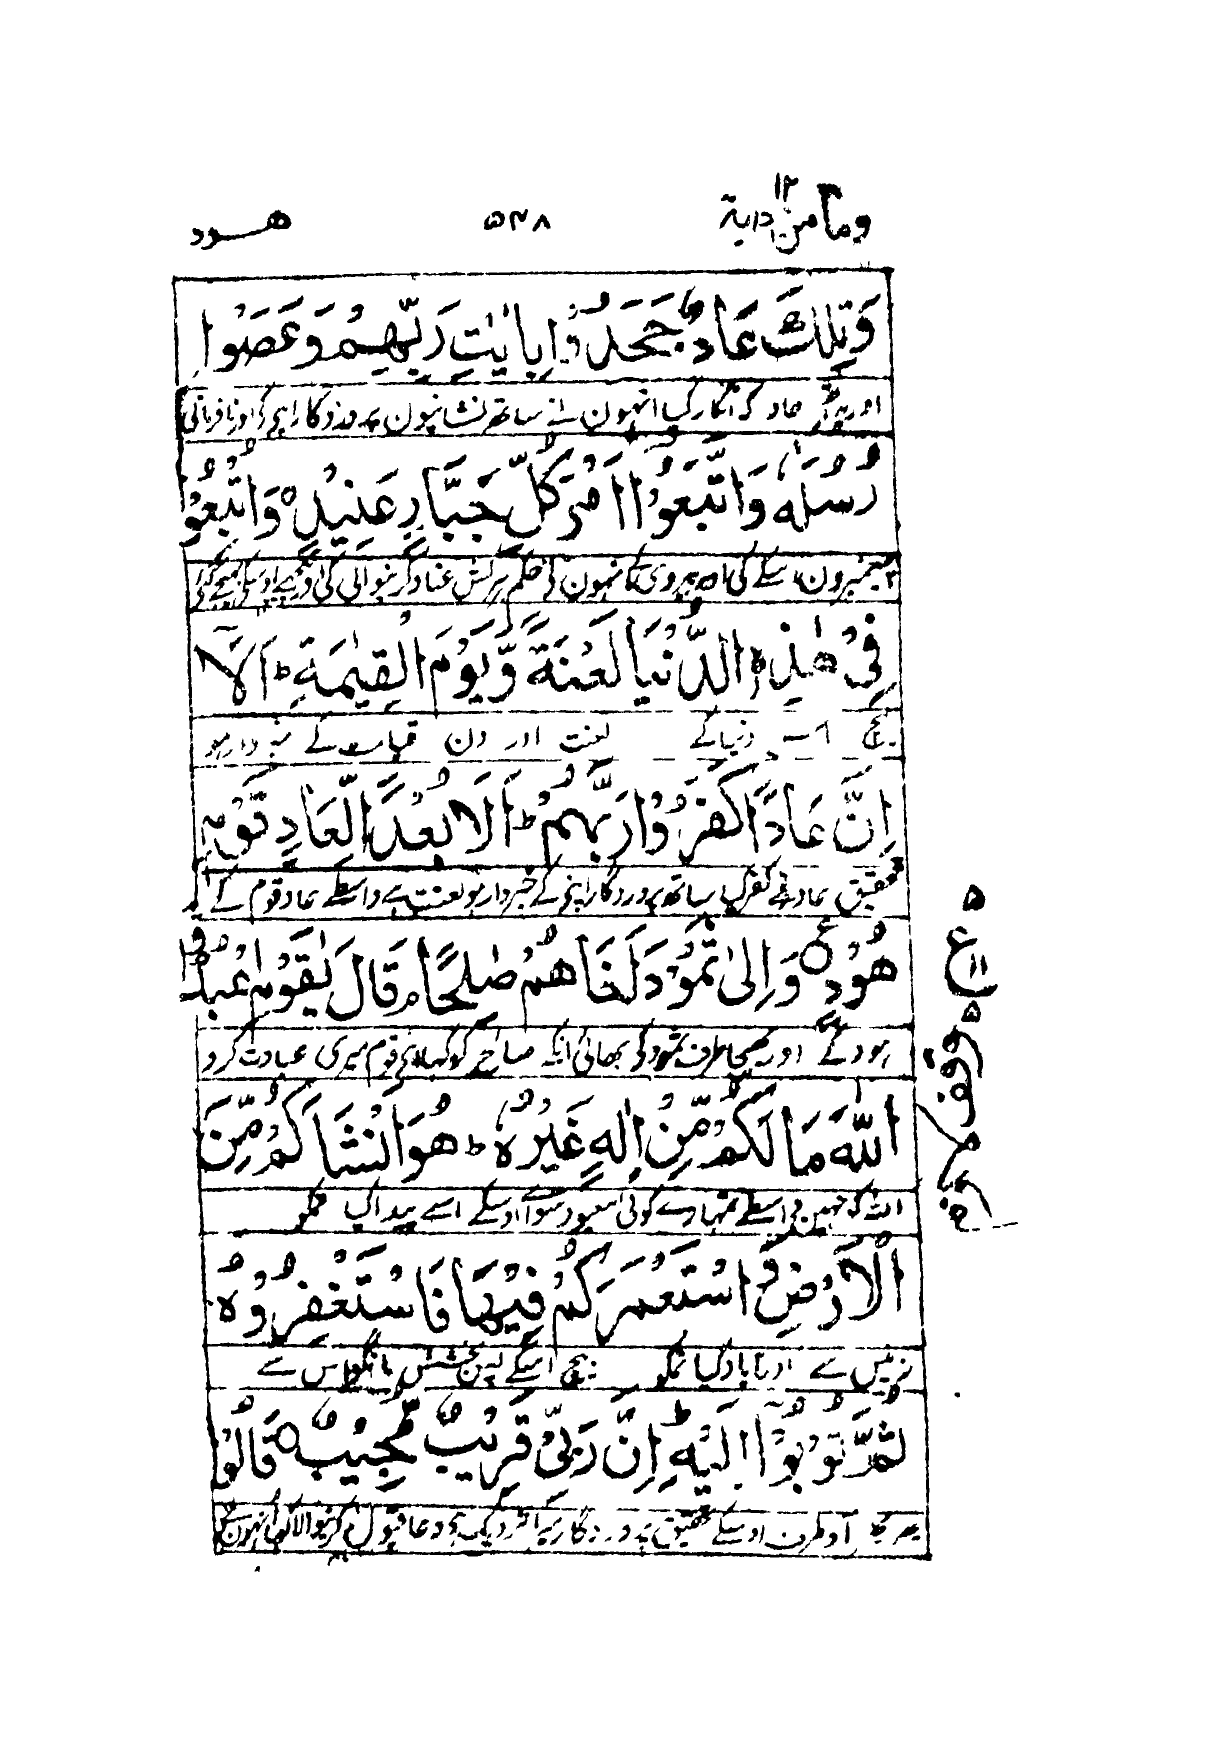 وما من دابة ١٢
۵۴۸
هود
وَتِلْكَ عَادٌ جَحَدُوْا بِاٰيٰتِ رَبِّهِمْ وَعَصَوْا
اور یہ عاد کہ انکار کیا انہون نے ساتھ نشانیون پروردگار اپنے کی اور نافرمانی
رُسُلَهٗ وَاتَّبَعُوْٓا اَمْرَ كُلِّ جَبَّارٍ عَنِيْدٍ ۝ وَاُتْبِعُوْا
پیغمبرون اسکے کی اور پیروی کی انہون نے حکم سرکش عناد کرنیوالی کی اور پیچھے
فِيْ هٰذِهِ الدُّنْيَا لَعْنَةً وَّيَوْمَ الْقِيٰمَةِ ؕ اَلَآ
بیچ اس دنیا کے لعنت اور دن قیامت کے خبردار ہو
اِنَّ عَادًا كَفَرُوْا رَبَّهُمْ ؕ اَلَا بُعْدًا لِّعَادٍ قَوْمِ
تحقیق عاد نے کفر کیا ساتھ پروردگار اپنے کے خبردار ہو لعنت ہے واسطے عاد قوم کے
هُوْدٍ ۝ وَاِلٰى ثَمُوْدَ اَخَاهُمْ صٰلِحًا ۘ قَالَ يٰقَوْمِ اعْبُدُوا
ہود کے اور بھیجا طرف ثمود کی بھائی انکے صالح کو کہا اے قوم میری عبادت کرو
اللّٰهَ مَا لَكُمْ مِّنْ اِلٰهٍ غَيْرُهٗ ؕ هُوَ اَنْشَاَكُمْ مِّنَ
اللہ کو نہین واسطے تمہارے کوئی معبود سوائے اوسکے اسنے پیدا کیا تمکو
الْاَرْضِ وَاسْتَعْمَرَكُمْ فِيْهَا فَاسْتَغْفِرُوْهُ
زمین سے اور آباد کیا تمکو بیچ اسکے پس بخشش مانگو اس سے
ثُمَّ تُوْبُوْٓا اِلَيْهِ ؕ اِنَّ رَبِّيْ قَرِيْبٌ مُّجِيْبٌ ۝ قَالُوْا
پھر آؤ طرف اوسکے تحقیق پروردگار میرا نزدیک ہے دعا قبول کرنیوالا کہا انہون نے
۵
ع
۱۱
۵